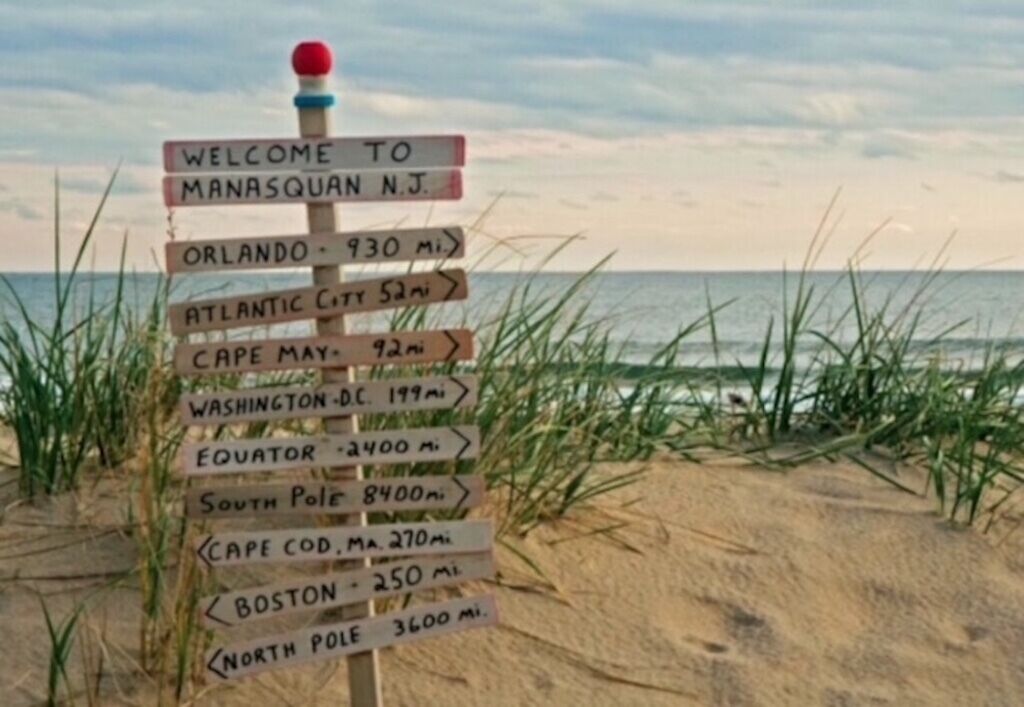 WELCOME TO
MANASQUAN N.J.
ORLANDO - 930 Mi. >
ATLANTIC CITY 52mi >
CAPE MAY - 92mi >
WASHINGTON - D.C. 199mi >
EQUATOR - 2400 Mi >
SOUTH POLE 8400mi >
< CAPE COD, MA. 270mi
< BOSTON - 250 mi.
< NORTH POLE 3600 mi.